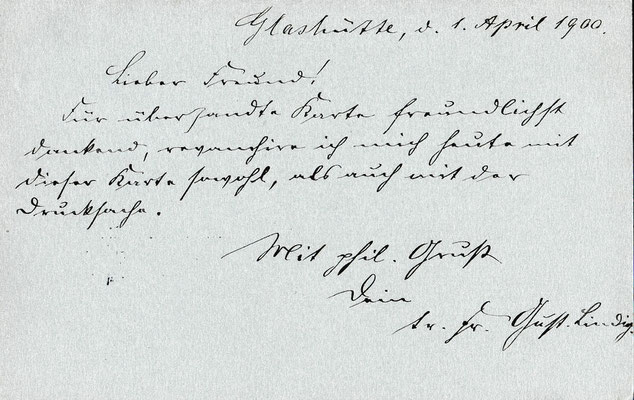 Glashütte, d. 1. April 1900.
Lieber Freund!
Für übersandte Karte freundlichst
dankend, revanchire ich mich heute mit
dieser Karte sowohl, als auch mit der
Drucksache.
Mit phil. Gruß
Dein
tr. Fr. Gust. Lindig.